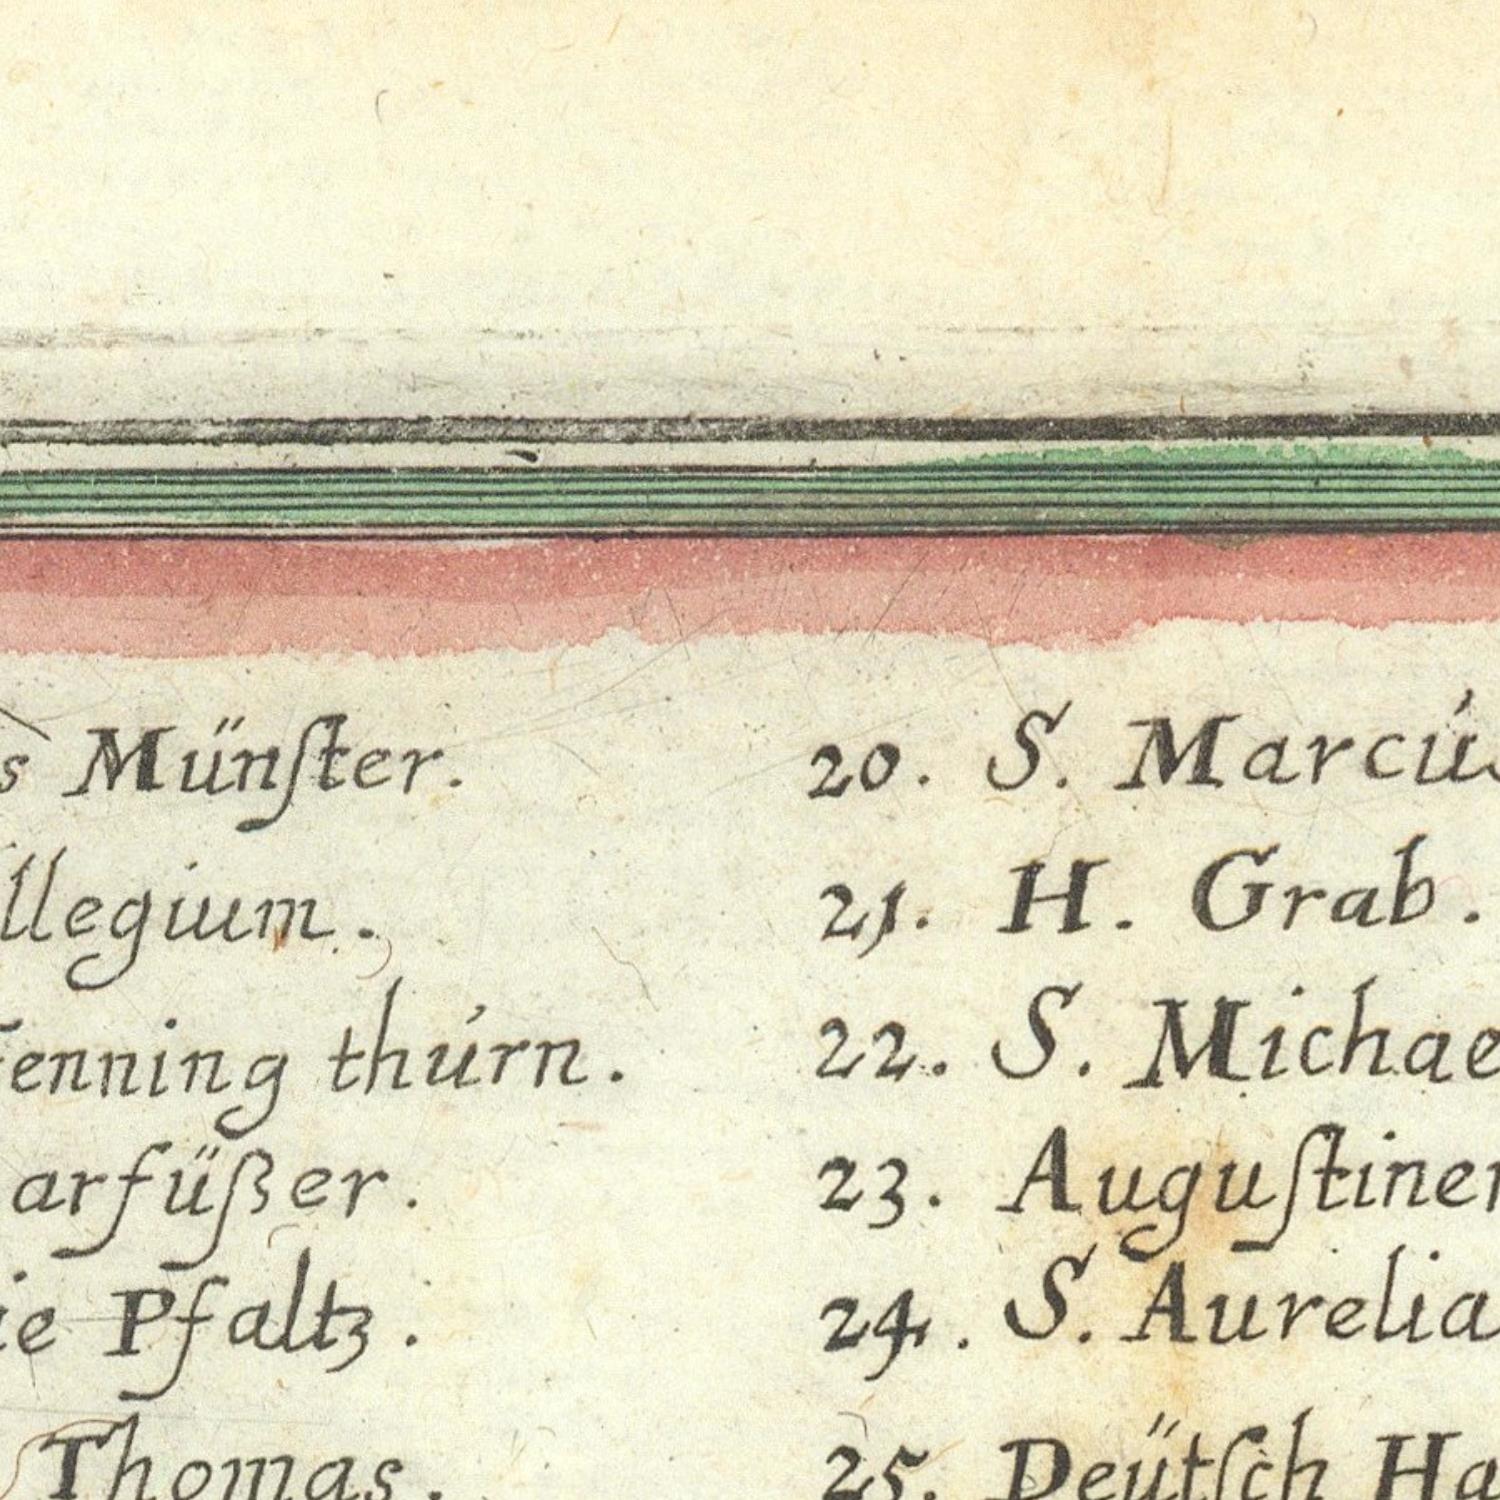 s Münſter.
llegium.
enning thúrn.
arfüßer.
ie Pfaltz.
Thomas.
20. S. Marcús
21. H. Grab.
22. S. Michae
23. Auguſtiner
24. S. Aurelia
25. Deütſch Ha